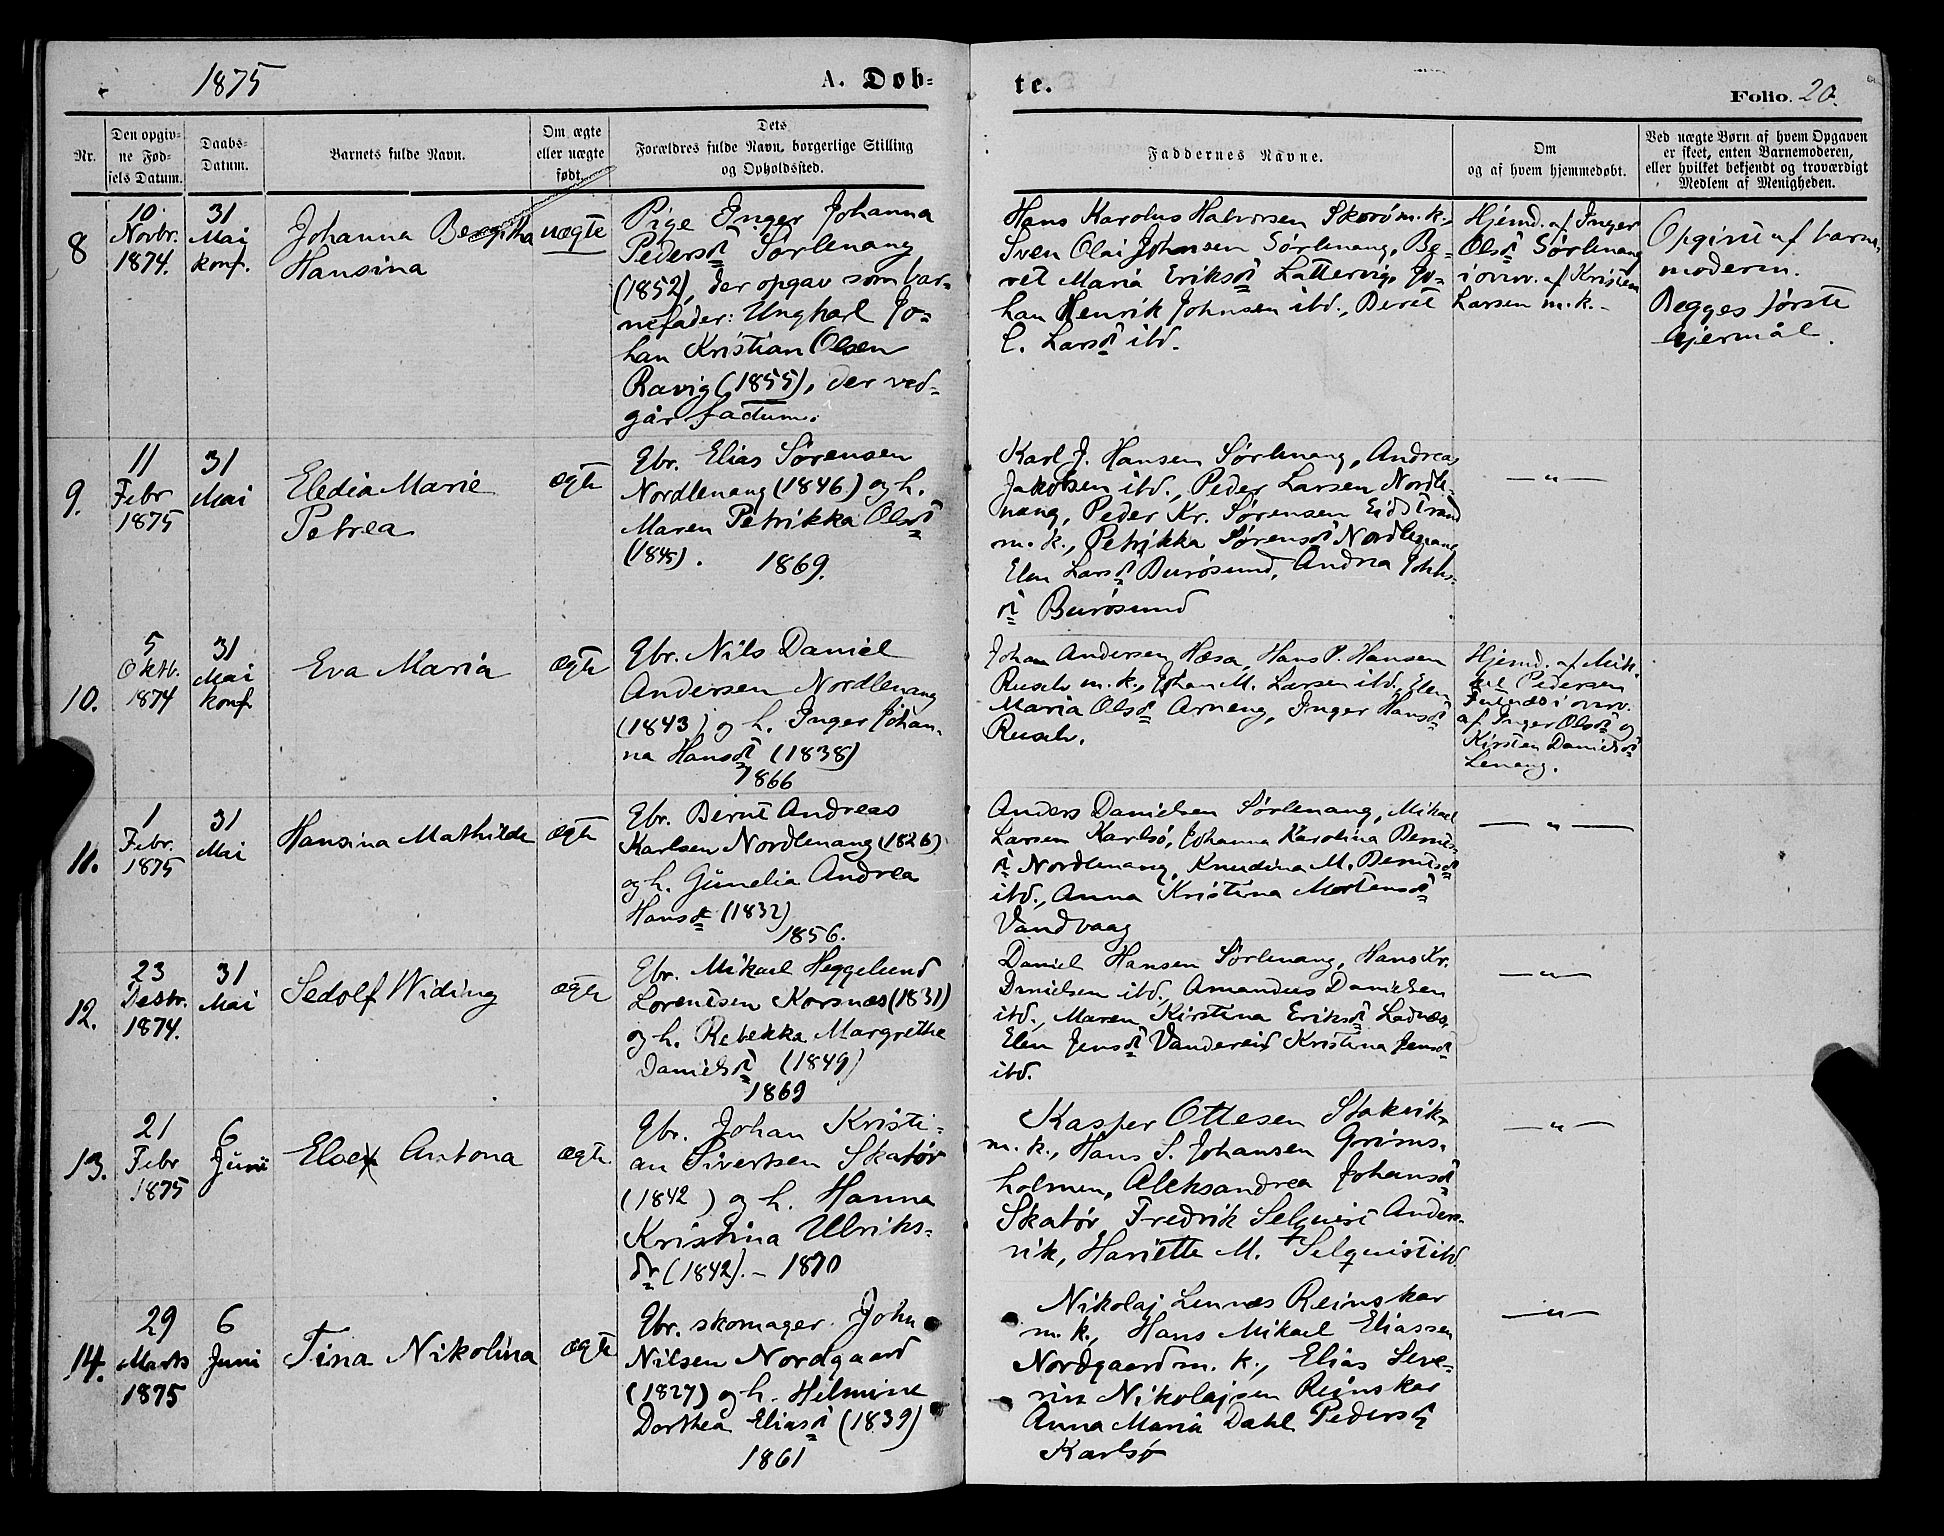 1875
A. Døb-
te.
Folio. 20.
Nr.
Den opgiv-
ne Fød-
sels Datum.
Daabs-
Datum.
Barnets fulde Navn.
Om ægte
eller uægte
født.
Dets
Forældres fulde Navn, borgerlige Stilling
og Opholdssted.
Faddernes Navne.
Om
og af hvem hjemmedøbt.
Ved uægte Børn af hvem Opgaven
er skeet, enten Barnemoderen,
eller hvilket bekjendt og troværdigt
Medlem af Menigheden.
8
10
Novbr.
1874.
31
Mai
konf.
Johanna Bergitha
Hansina
uægte
Pige Inger Johanna
Pedersdr Sørlenang
(1852), der opgav som bar-
nefader: Ungkarl Jo-
han Kristian Olsen
Ravig (1855), der ved-
går factum.
Hans Karolus Halvorsen Skorö m.k.,
Sven Olai Johnsen Sørlenang, Be-
ret Maria Eriksdr Lattervig, Jo-
han Henrik Johnsen ibd., Beret
L. Larsdr ibd.
Hjemd. af Inger
Olsdr Sørlenang
i overv. af Kristen
Larsen m.k.-
Opgivet af barne-
moderen.
Begges første
lejermål.
9.
11
Febr
1875
31
Mai
Eledia Marie
Petrea
ægte
Gbr. Elias Sørensen
Nordlenang (1846) og h.
Maren Petrikka Olsdr
(1848).
1869.
Karl J. Hansen Sørlenang, Andreas
Jakobsen ibd., Peder Larsen Nordle-
nang, Peder Kr. Sørensen Eidstrand
m.k., Petrikka Sørensdr Nordlenang
Elen Larsdr Burøsund, Andrea Johns-
dr Burøsund
— " —
10.
5
Oktb.
1874
31
Mai
konf.
Eva Maria
ægte
Gbr. Nils Daniel
Andersen Nordlenang
(1843) og h. Inger Johan-
na Hansdr (1838)
1866
Johan Andersen Hæsa, Hans P. Hansen
m.k., Johan M. Larsen ibd. Elen
Maria Olsdr Arneng, Inger Hansdr
Hjemd. af Mik-
ael Pedersen
i overv.
af Inger Olsdr og
Kirsten Danielsdr
Lenang.
11.
1
Febr.
1875
31
Mai
Hansina Mathilde
ægte
Gbr. Bernt Andreas
Karlsen Nordlenang (1826)
og h. Gunelia Andrea
Hansdr (1832)
1856.
Anders Danielsen Sørlenang, Mikael
Larsen Karlsø, Johanna Karolina Bernts-
dr Nordlenang, Knudina M. Berntsdr
ibd., Anna Kristina Mortensdr
Vandvaag
— " —
12.
23
Decbr.
1874.
31
Mai
Sedolf Widing
ægte
Gbr. Mikael Heggelund
Lorentsen Korsnæs (1831)
og h. Rebekka Margrethe
Danielsdr (1849)
1869
Daniel Hansen Sørlenang, Hans Kr.
Danielsen ibd., Amandus Danielsen
ibd., Maren Kirstina Eriksdr
Elen Jensdr Vandereid Kristina Jensdr
ibd.
— " —
13.
21
Febr
1875
6
Juni
Antona
ægte
Gbr. Johan Kristi-
an Sivertsen Skatør
(1842) og h. Hanna
Kristina Ulriks-
dr (1842). – 1870
Kasper Ottesen Stakvik
m.k., Hans S. Johansen Grims-
holmen, Aleksandrea Johansdr
Skatør, Fredrik Selquist Anders-
vik, Hariette M. Selquist ibd
— " —
14.
29
Marts
1875
6
Juni
Tina Nikolina
ægte
Gbr. skomager John
Nilsen Nordgaard
(1827) og h. Helmine
Dorthea Eliasdr (1839)
1861
Nikolaj Lennæs Reinskar
m.k., Hans Mikael Eliassen
Nordgaard m.k., Elias Seve-
rin Nikolajsen Reinskar
Anna Maria Dahl Pedersdr
Karlsø
— " —